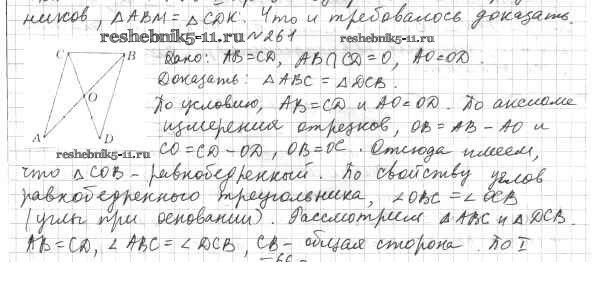 ников, △ABM = △CDK. Что и требовалось доказать.
reshebnik5-11.ru №261
C B
Дано: AB=CD, AB∩CD=O, AO=OD.
Доказать: △ABC = △DCB.
O
По условию, AB=CD и AO=OD. По аксиоме
измерения отрезков, OB = AB - AO и
A D
CO = CD - OD, OB = OC. Отсюда имеем,
reshebnik5-11.ru
что △COB - равнобедренный. По свойству углов
равнобедренного треугольника, ∠OBC = ∠OCB
(углы при основании). Рассмотрим △ABC и △DCB.
AB = CD, ∠ABC = ∠DCB, CB - общая сторона. По I